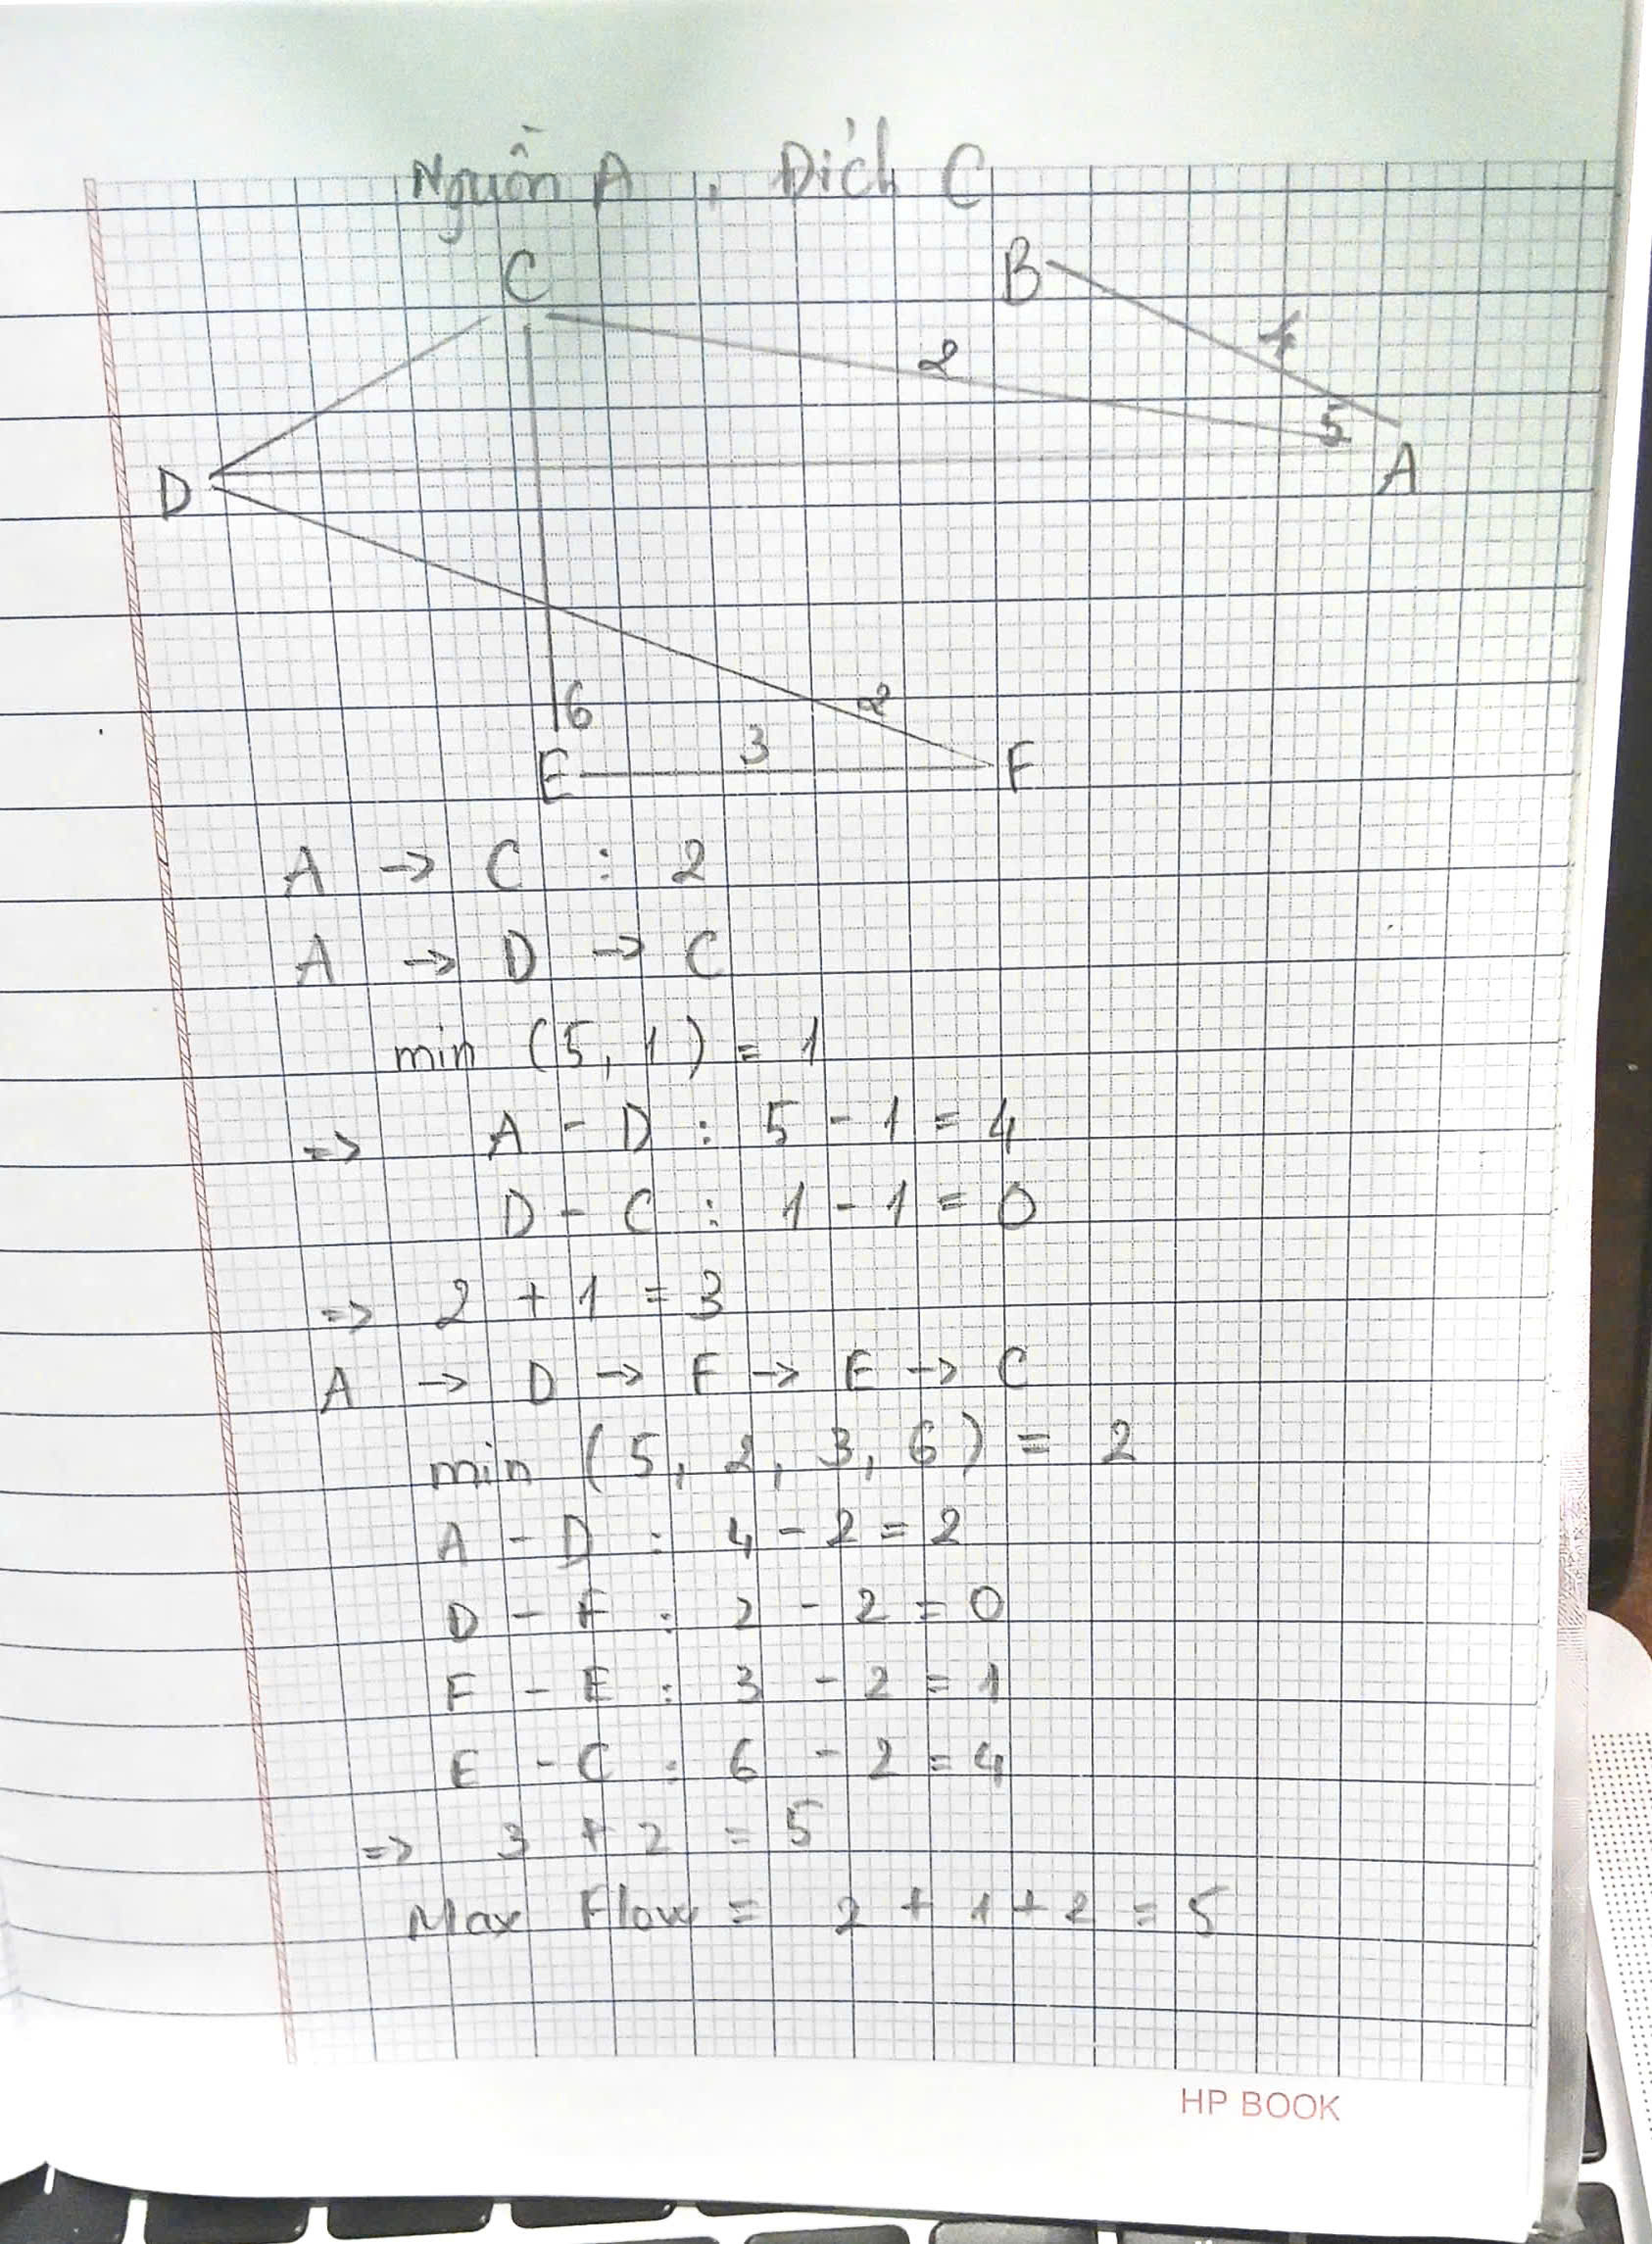 Nguồn A , Đích C
C
B
4
2
5
D
A
6
2
3
E
F
A → C : 2
A → D → C
min (5, 1) = 1
=> A - D : 5 - 1 = 4
D - C : 1 - 1 = 0
=> 2 + 1 = 3
A → D → F → E → C
min (5, 2, 3, 6) = 2
A - D : 4 - 2 = 2
D - F : 2 - 2 = 0
F - E : 3 - 2 = 1
E - C : 6 - 2 = 4
=> 3 + 2 = 5
Max Flow = 2 + 1 + 2 = 5
HP BOOK